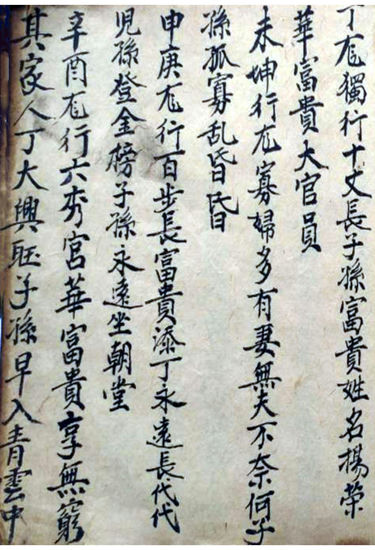 丁龙獨行十丈長子孫富貴姓名揚荣
華富貴大官員
未坤行龙寡婦多有妻無夫不奈何子
孫孤寡乱昏昏
申庚龙行百步長富貴添丁永遠長代代
児孫登金榜子孫永遠坐朝堂
辛酉龙行六秀宮華富貴享無窮
其家人丁大興旺子孫早入青雲中